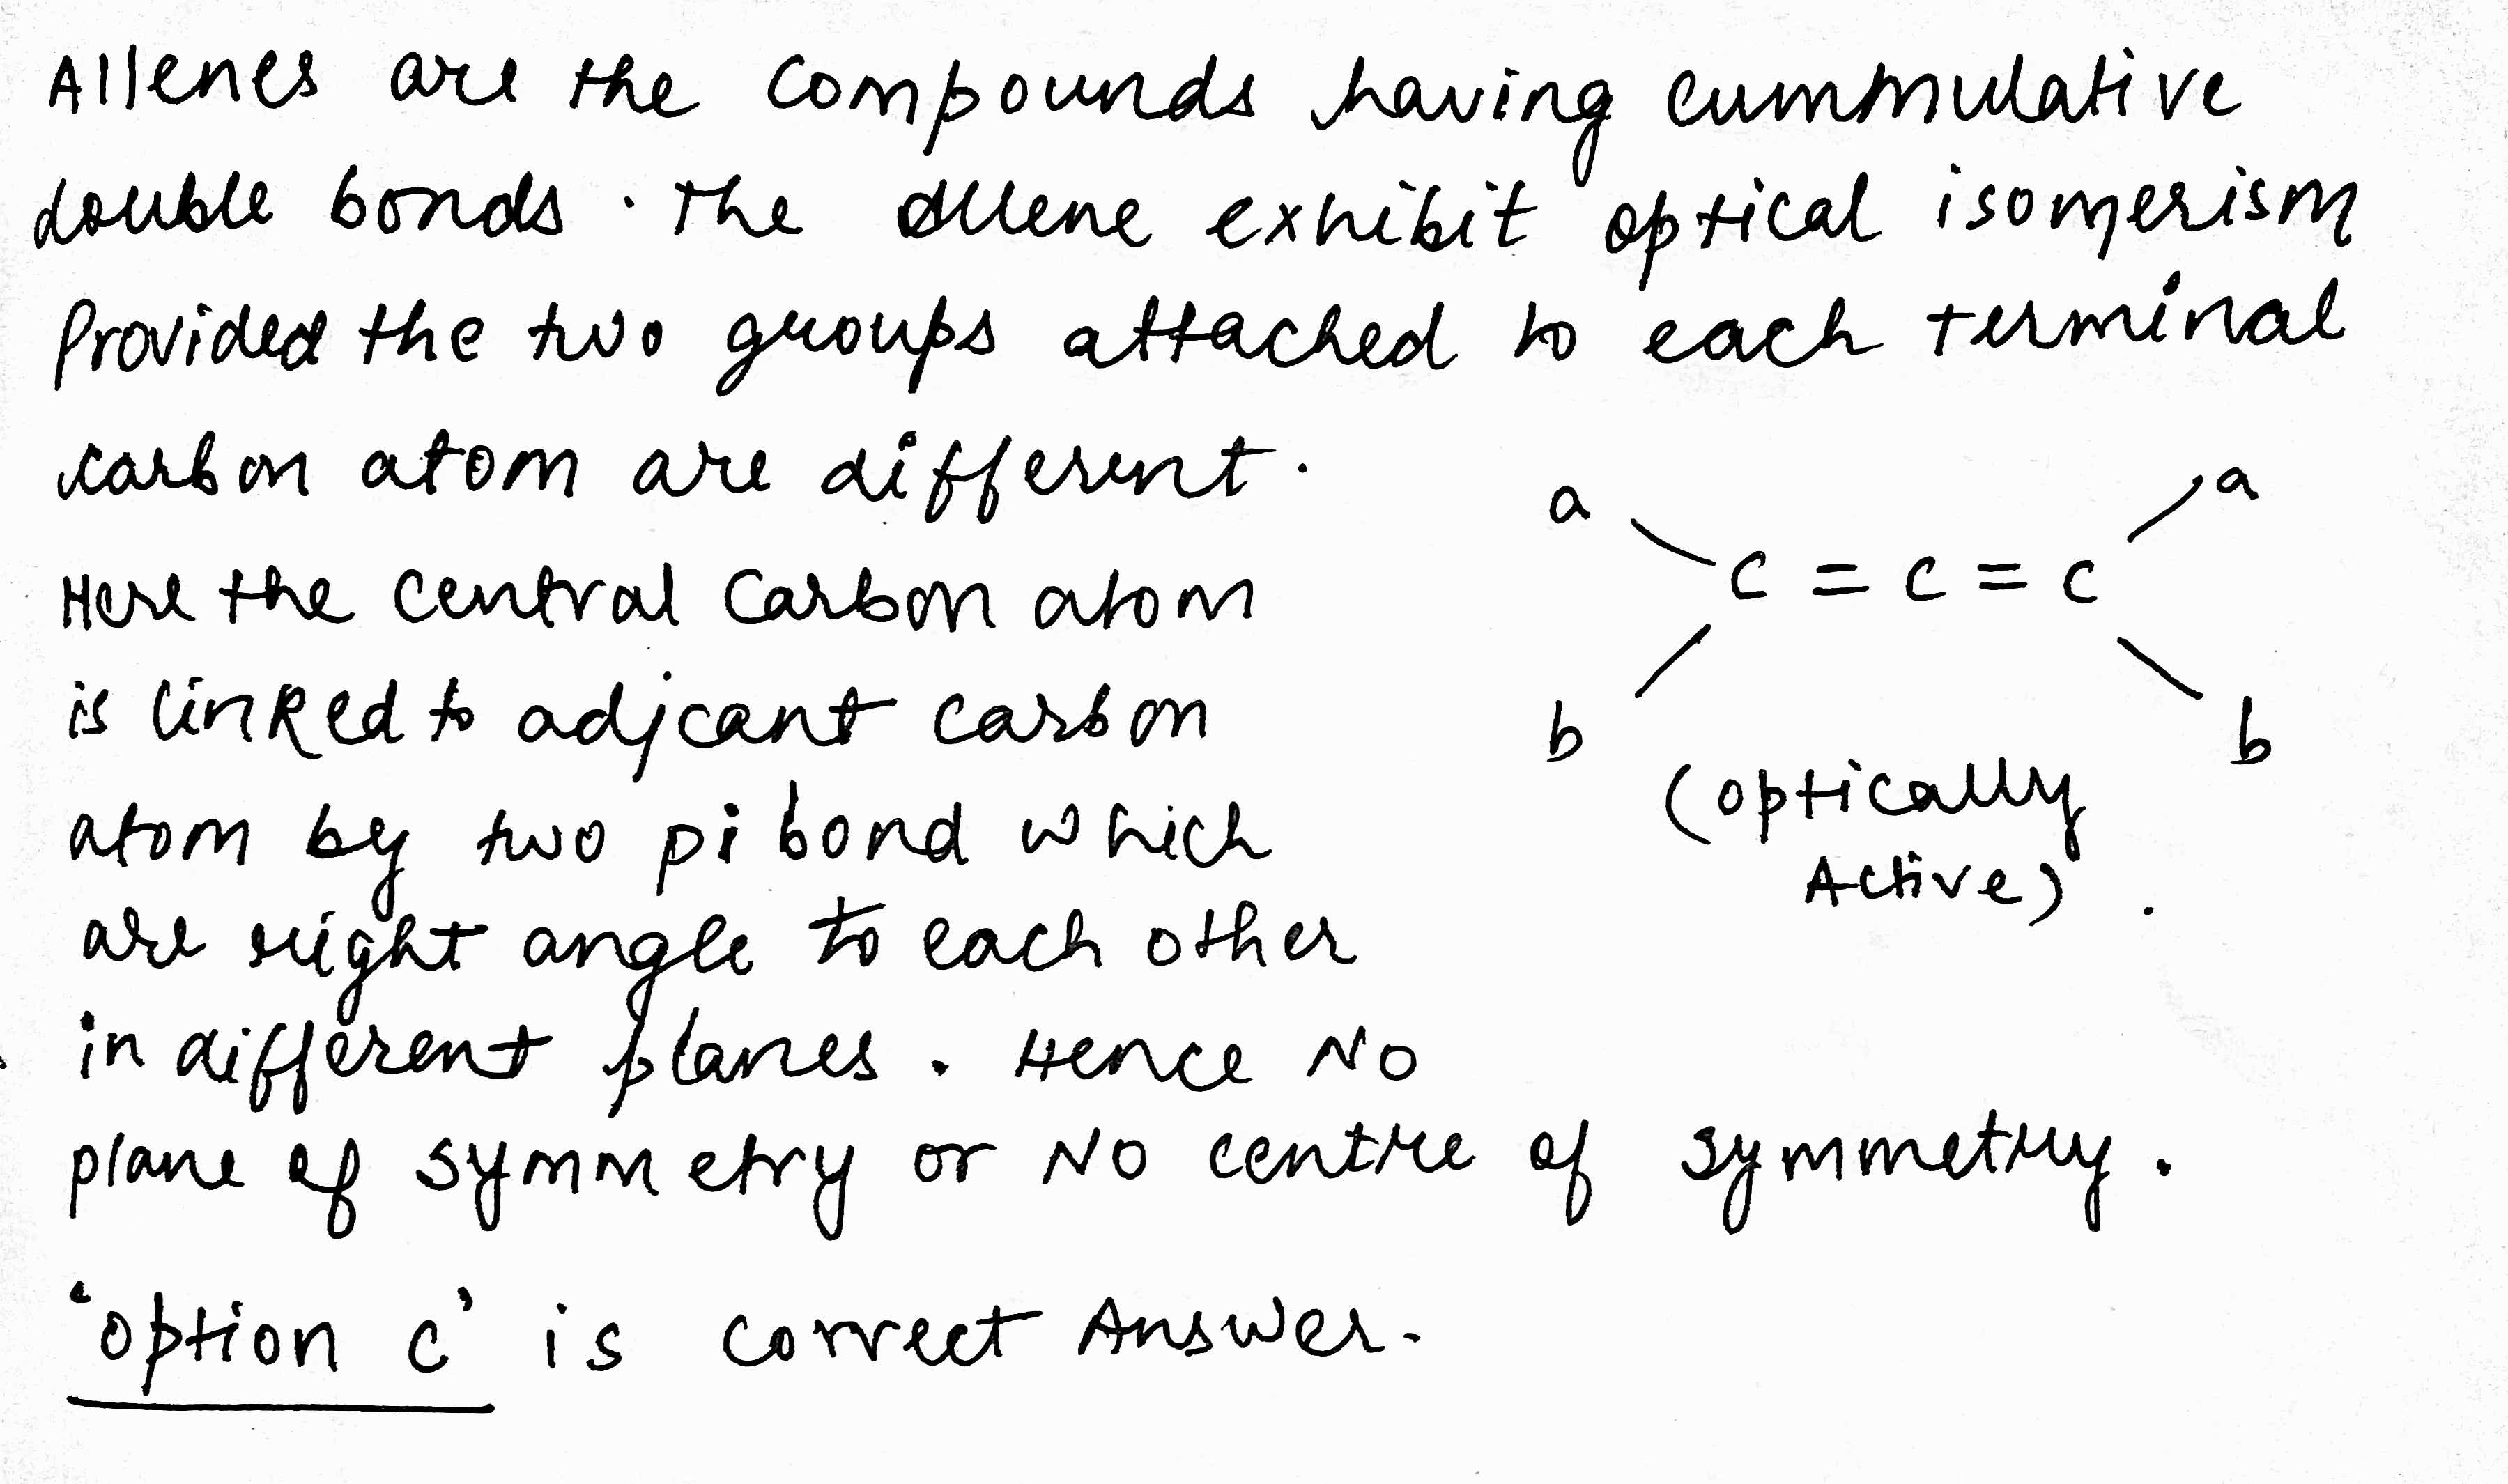 Allenes are the compounds having cummulative
double bonds. The allene exhibit optical isomerism
Provided the two groups attached to each terminal
carbon atom are different.
a a
C = C = C
Here the central carbon atom
is linked to adjcant carbon
b b
atom by two pi bond which
(optically
Active).
are right angle to each other
in different planes. Hence NO
plane of symmetry or NO centre of symmetry.
'option c' is correct Answer.